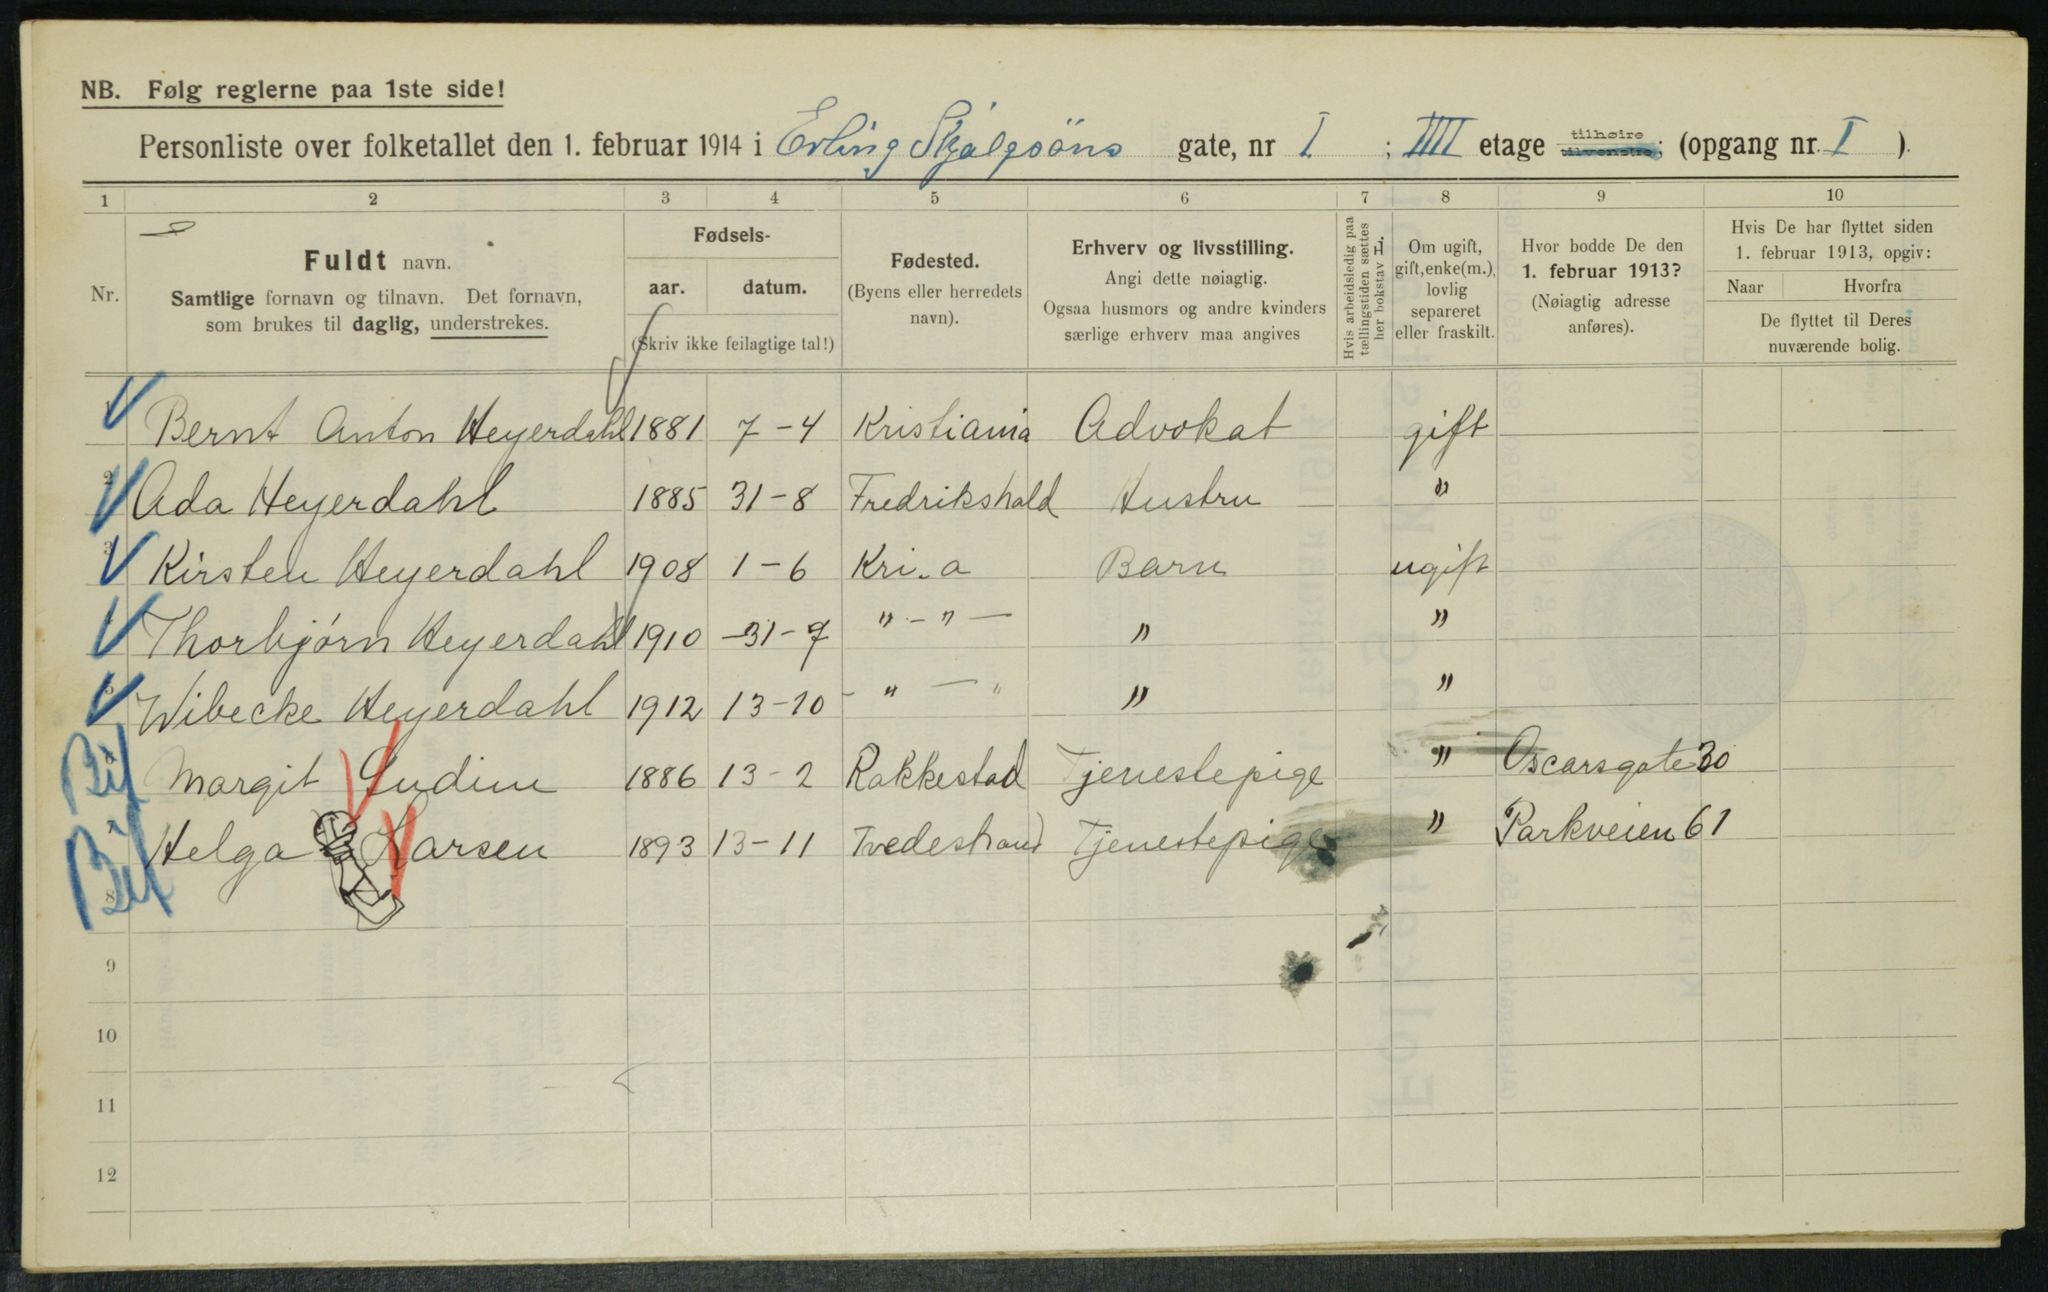 NB. Følg reglerne paa 1ste side!
Personliste over folketallet den 1. februar 1914 i Erling Skjalgsöns gate, nr I ; IIII etage tilhøire tilvenstre; (opgang nr. I ).
1 2 3 4 5 6 7 8 9 10
Nr.
Fuldt navn.
Samtlige fornavn og tilnavn. Det fornavn,
som brukes til daglig, understrekes.
Fødsels-
aar. datum.
(Skriv ikke feilagtige tal!)
Fødested.
(Byens eller herredets
navn).
Erhverv og livsstilling.
Angi dette nøiagtig.
Ogsaa husmors og andre kvinders
særlige erhverv maa angives
Hvis arbeidsledig paa
tællingstiden sættes
her bokstav L.
Om ugift,
gift, enke(m.),
lovlig
separeret
eller fraskilt.
Hvor bodde De den
1. februar 1913?
(Nøiagtig adresse
anføres).
Hvis De har flyttet siden
1. februar 1913, opgiv:
Naar Hvorfra
De flyttet til Deres
nuværende bolig.
1 Bernt Anton Heyerdahl 1881 7-4 Kristiania Advokat gift
2 Ada Heyerdahl 1885 31-8 Fredrikshald Hustru "
3 Kirsten Heyerdahl 1908 1-6 Kri.a Barn ugift
Thorbjørn Heyerdahl 1910 -31-7 "-"- " "
5 Wibecke Heyerdahl 1912 13-10 - " - " " "
Bif Margit Sudim 1886 13-2 Rakkestad Tjenestepige " Oscarsgate 30
Bif Helga Karsen 1893 13-11 Tvedestrand Tjenestepige " Parkveien 61
8
9
10
11
12